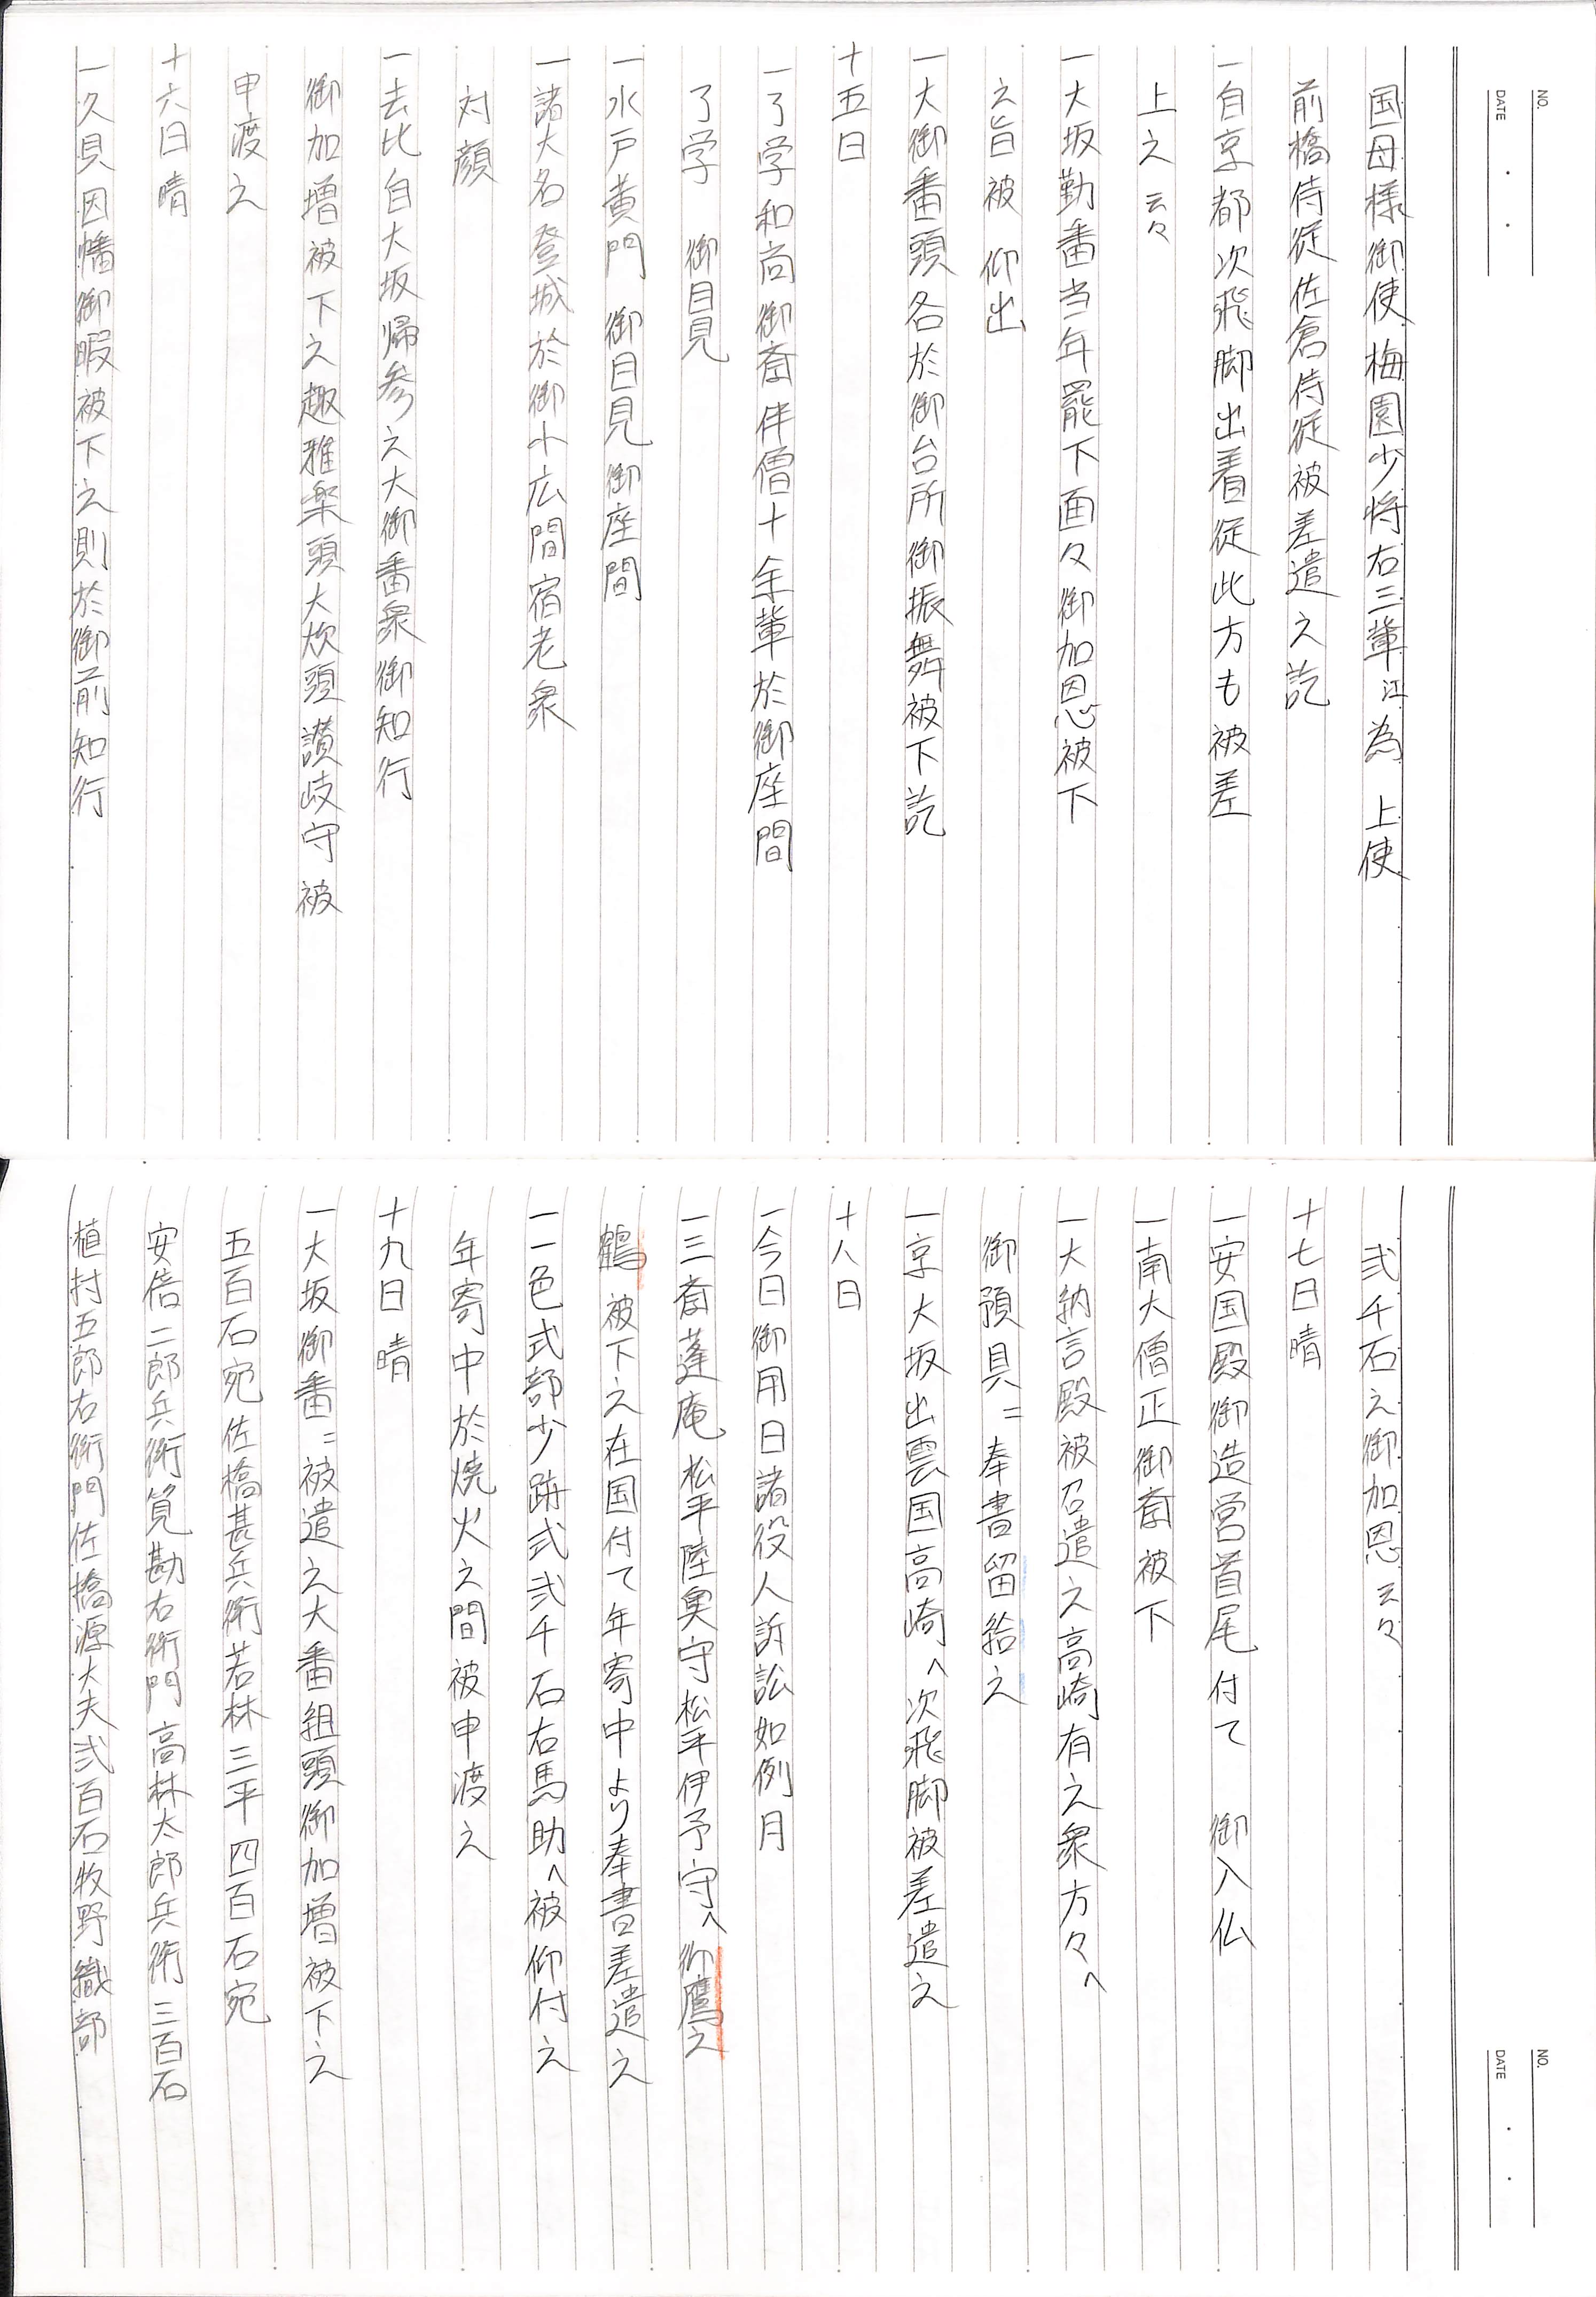 NO.
DATE
国母様御使梅園少将右三輩江為　上使
前橋侍従佐倉侍従被差遣之訖
一自京都次飛脚出着従此方も被差
上之云々
一大坂勤番当年罷下面々御加恩被下
之旨被　仰出
一大御番頭各於御台所御振舞被下訖
十五日
一了学和尚御斎伴僧十余輩於御座間
了学　御目見
一水戸黄門　御目見御座間
一諸大名登城於御小広間宿老衆
対顔
一去比自大坂帰参之大御番衆御知行
御加増被下之趣雅楽頭大炊頭讃岐守被
申渡之
十六日晴
一久貝因幡御暇被下之則於御前知行
NO.
DATE
弐千石之御加恩云々
十七日晴
一安国殿御造営首尾付て　御入仏
一南大僧正御斎被下
一大納言殿被召遣之高崎有之衆方々へ
御預具ニ奉書留給之
一京大坂出雲国高崎へ次飛脚被差遣之
十八日
一今日御用日諸役人訴訟如例月
一三斎蓬庵松平陸奥守松平伊予守へ御鷹之
鶴被下之在国付て年寄中より奉書差遣之
一一色式部少跡弐千石右馬助へ被仰付之
年寄中於焼火之間被申渡之
十九日晴
一大坂御番ニ被遣之大番組頭御加増被下之
五百石宛佐橋甚兵衛若林三平四百石宛
安倍二郎兵衛筧勘右衛門高林太郎兵衛三百石
植村五郎右衛門佐橋源大夫弐百石牧野織部